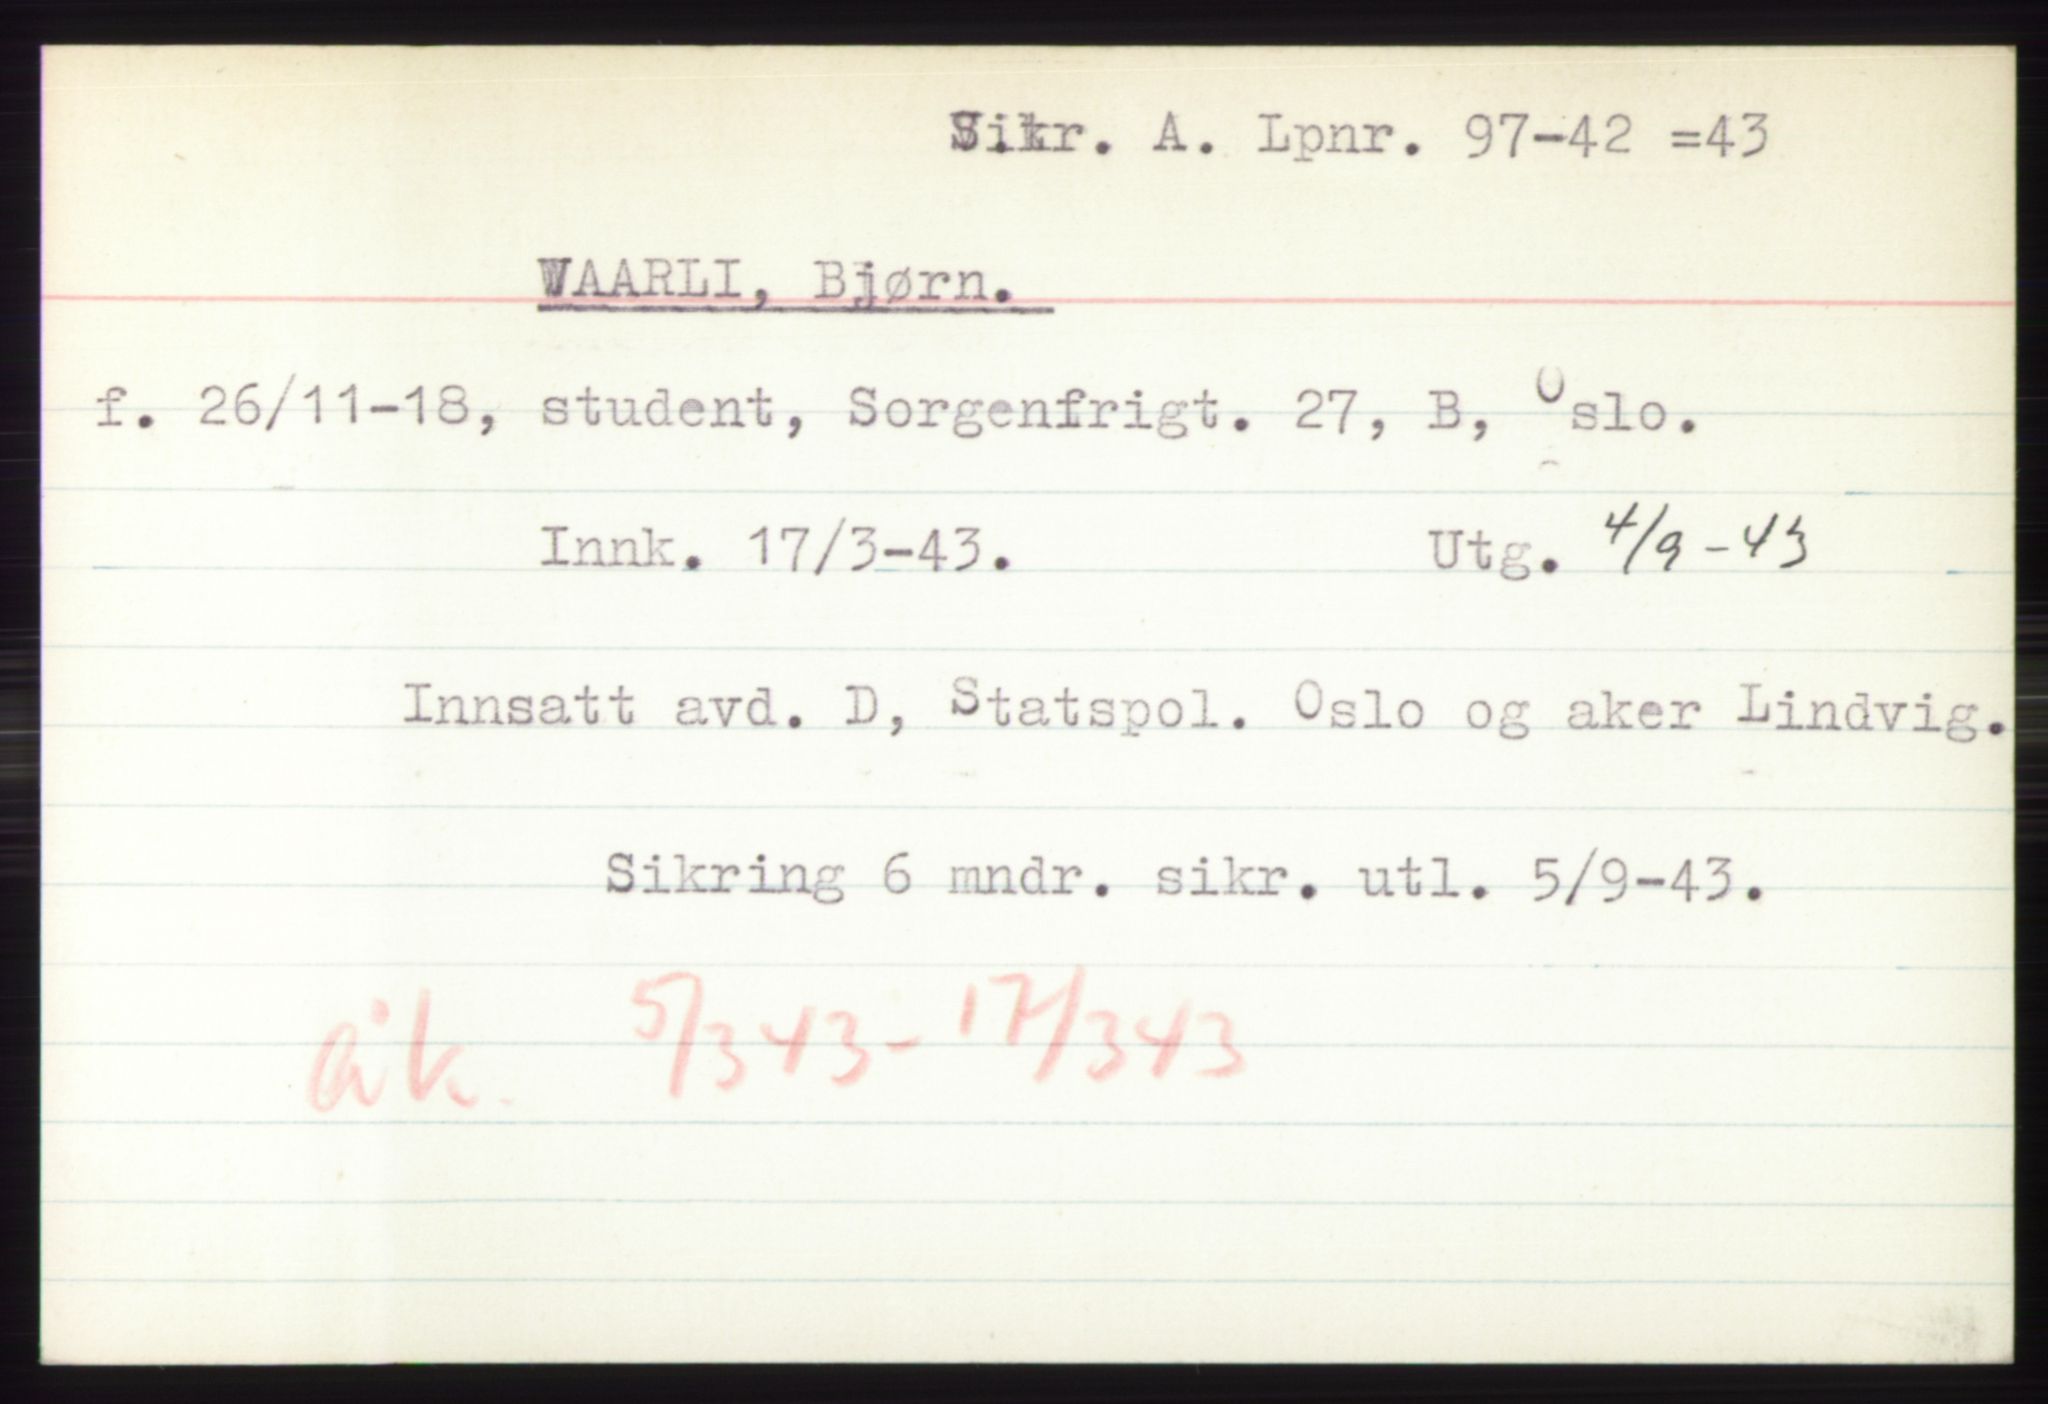 Sikr. A. Lpnr. 97-42 =43
WAARLI, Bjørn.
f. 26/11-18, student, Sorgenfrigt. 27, B, Oslo.
Innk. 17/3-43. Utg. 4/9-43
Innsatt avd. D, Statspol. Oslo og aker Lindvig.
Sikring 6 mndr. sikr. utl. 5/9-43.
åk. 5/3 43 - 17/3 43